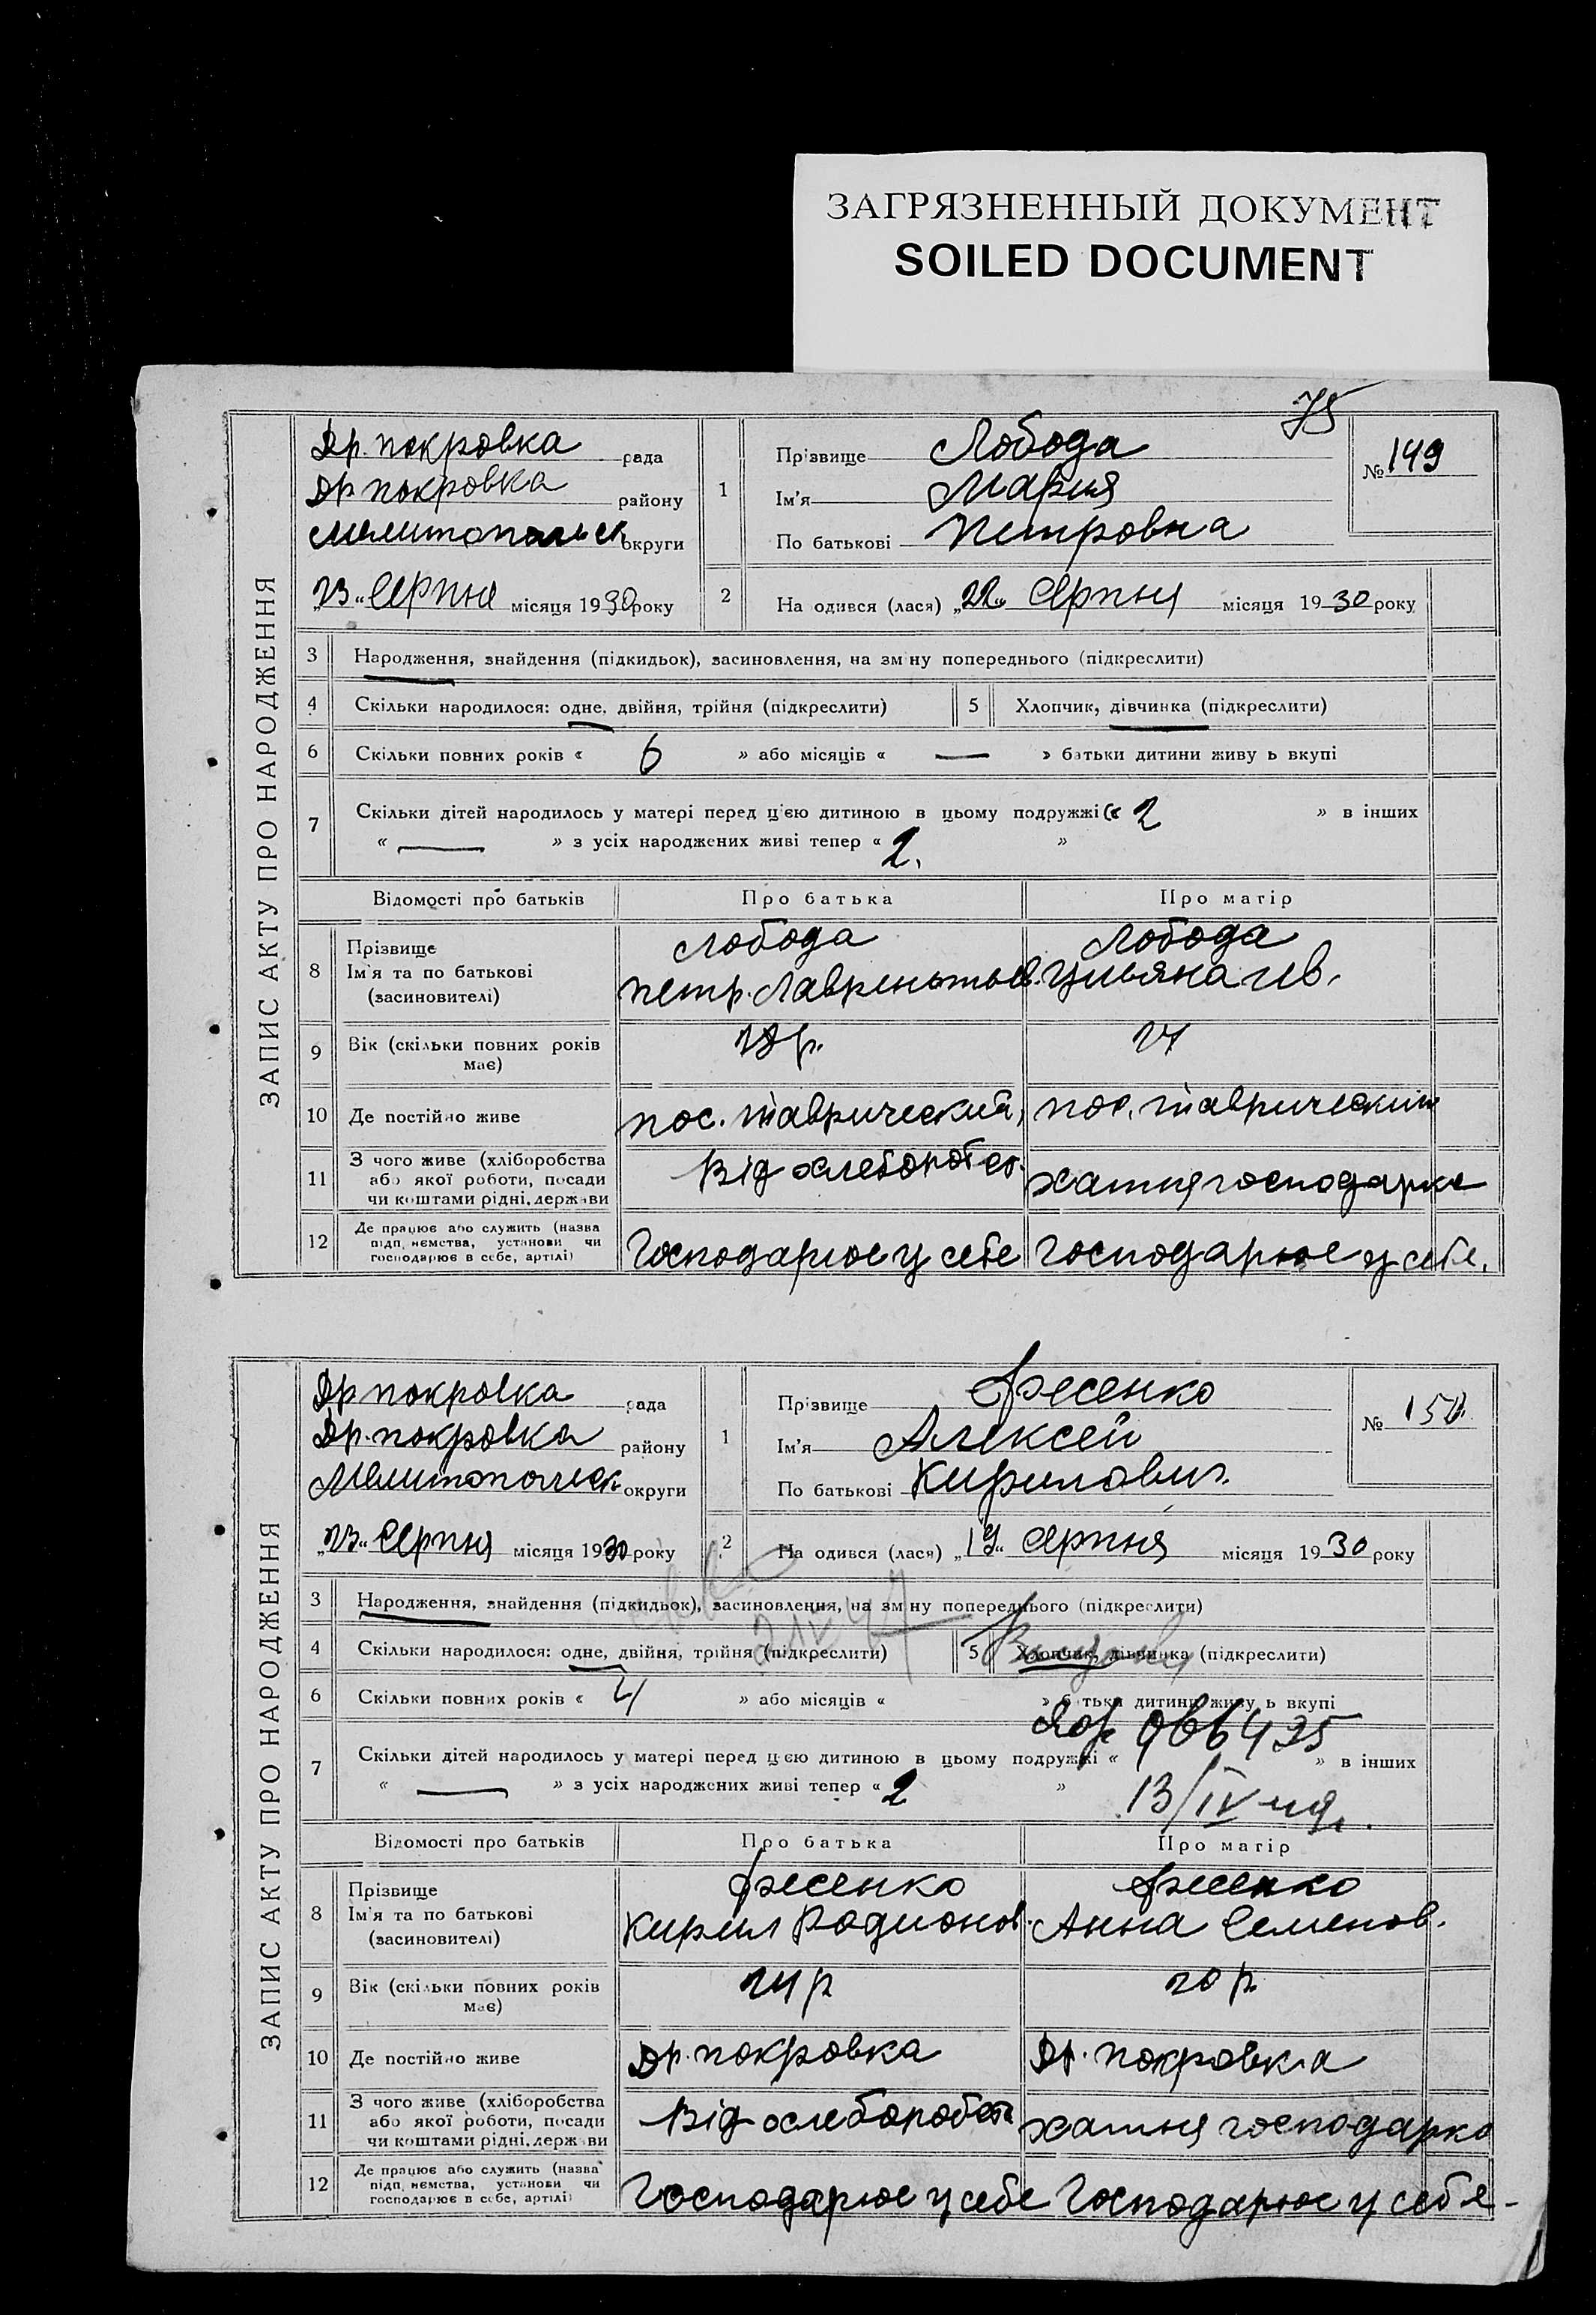 ЗАГРЯЗНЕННЫЙ ДОКУМЕНТ
SOILED DOCUMENT
75
ЗАПИС АКТУ ПРО НАРОДЖЕННЯ
Др. покровка рада
Др покровка району
Мелитопольск округи
"23" Серпня місяця 1930 року
1 Прізвище Лобода
Ім'я Мария
По батькові Петровна
№ 149
2 На одився (лася) "22" Серпня місяця 1930 року
3 Народження, знайдення (підкидьок), засиновлення, на зм ну попереднього (підкреслити)
4 Скільки народилося: одне, двійня, трійня (підкреслити) 5 Хлопчик, дівчинка (підкреслити)
6 Скільки повних років « 6 » або місяців « — » батьки дитини живу ь вкупі
7 Скільки дітей народилось у матері перед цією дитиною в цьому подружжі « 2 » в інших
« — » з усіх народжених живі тепер « 2. »
Відомості про батьків Про батька Про матір
8 Прізвище Лобода Лобода
Ім'я та по батькові Петр. Лаврентьев. Ульяна
(засновителі)
9 Вік (скільки повних років
має)
10 Де постійно живе пос. таврический, пос. таврический
11 З чого живе (хліборобства Від хлеборобст. хатня господарка
або якої роботи, посади
чи коштами рідні, держави
12 Де працює або служить (назва
підп. ємства, установи чи
господарює в себе, артілі) Господарюе у себе Господарюе у себе.
ЗАПИС АКТУ ПРО НАРОДЖЕННЯ
Др покровка рада
Др. покровка району
Мелитопольск округи
"23" Серпня місяця 1930 року
1 Прізвище Фесенко
Ім'я Алексей
По батькові Кирилович.
№ 150.
2 На одився (лася) "19" Серпня місяця 1930 року
3 Народження, знайдення (підкидьок), засиновлення, на зм ну попереднього (підкреслити)
4 Скільки народилося: одне, двійня, трійня (підкреслити) 5 Хлопчик, дівчинка (підкреслити)
6 Скільки повних років « 4 » або місяців « » батьки дитини живу ь вкупі
7 Скільки дітей народилось у матері перед цією дитиною в цьому подружжі « » в інших
« — » з усіх народжених живі тепер « 2 »
Відомості про батьків Про батька Про матір
8 Прізвище Фесенко Фесенко
Ім'я та по батькові Кирил Родионов. Анна Семенов.
(засновителі)
9 Вік (скільки повних років 24 р 20 р.
має)
10 Де постійно живе Др. покровка Др. покровка
11 З чого живе (хліборобства Від хлеборобств хатня господарка
або якої роботи, посади
чи коштами рідні, держ ви
12 Де працює або служить (назва
підп. ємства, установи чи
господарює в себе, артілі) Господарюе у себе Господарюе у себя